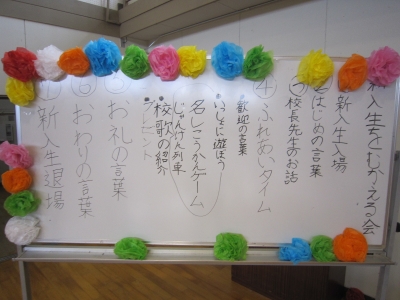 新入生をむかえる会
①新入生入場
②はじめの言葉
③校長先生のお話
④ふれあいタイム
・歓迎の言葉
・いっしょに遊ぼう
名しこうかんゲーム
じゃんけん列車
・校歌の紹介
・プレゼント
⑤お礼の言葉
⑥おわりの言葉
⑦新入生退場